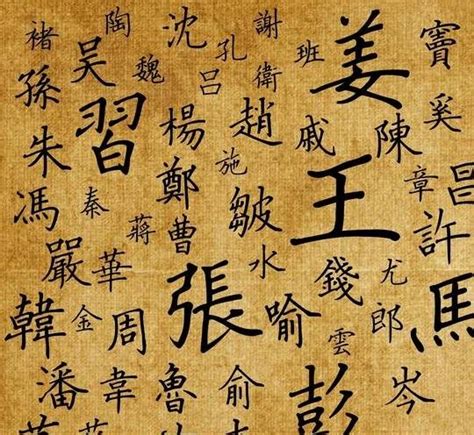 褚 陶 沈 孔 謝 班 姜 竇
孫 吳 魏 呂 衛 奚
朱 習 楊 趙 戚 陳
馮 秦 鄭 施 王 章 昌
蔣 曹 皺 許
嚴 華 水 錢 尤
韓 金 周 張 喻 雲 郎 馬
潘 韋 魯 俞 彭 岑